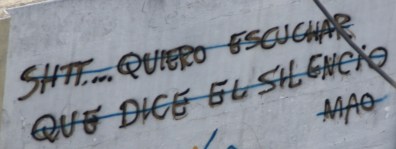 SHTT... QUIERO ESCUCHAR
QUE DICE EL SILENCIO
MAO